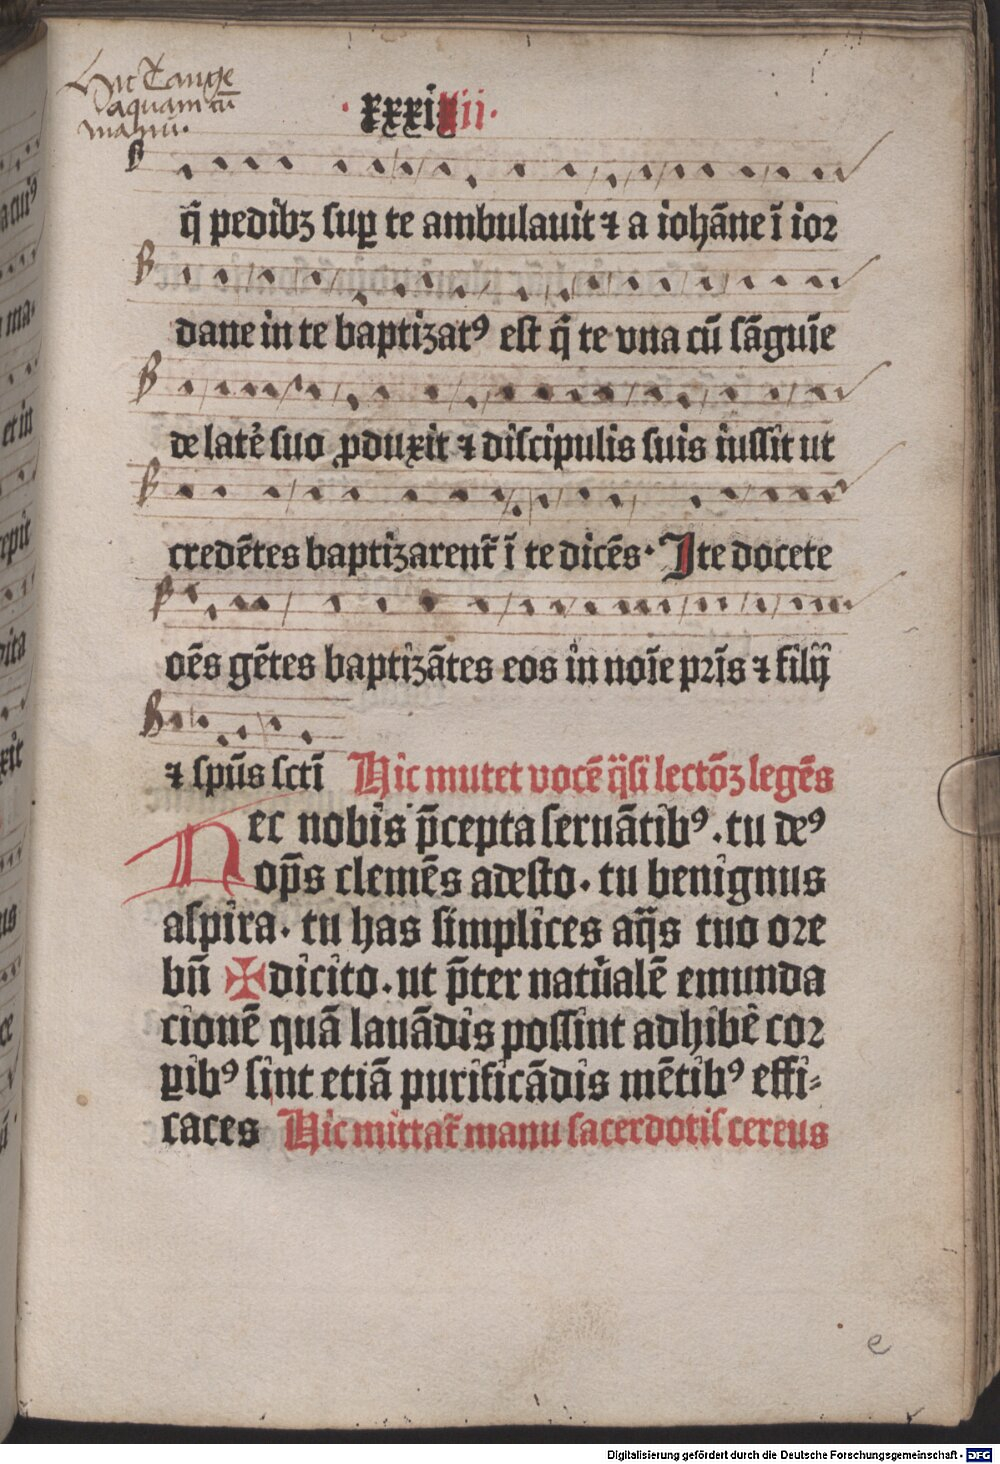 Hic Tange
aquam cū
manu.
· xxxiiii ·
q̄ pedibꝫ suꝑ te ambulauit ⁊ a iohāne ī ioꝛ
dane in te baptizatꝰ est q̄ te vna cū sāguīe
de lat̓e suo ꝓduxit ⁊ discipulis suis iussit ut
credētes baptizarent̄ ī te dicēs· Ite docete
oēs gētes baptizātes eos in noīe pr̄is ⁊ filij
⁊ sp̄us sctī Hic mutet vocē q̄si lectōꝫ legēs
Nec nobis p̄cepta seruātibꝰ. tu deꝰ
op̄s clemēs adesto. tu benignus
aspira. tu has simplices aq̄s tuo oꝛe
bn̄ ✠ dicito. ut p̄ter natūalē emunda
cionē quā lauādis possint adhibē coꝛ
ꝑibꝰ sint etiā purificādis mētibꝰ effi⸗
caces Hic mittat̄ manu sacerdotis cereus
e
Digitalisierung gefördert durch die Deutsche Forschungsgemeinschaft - DFG